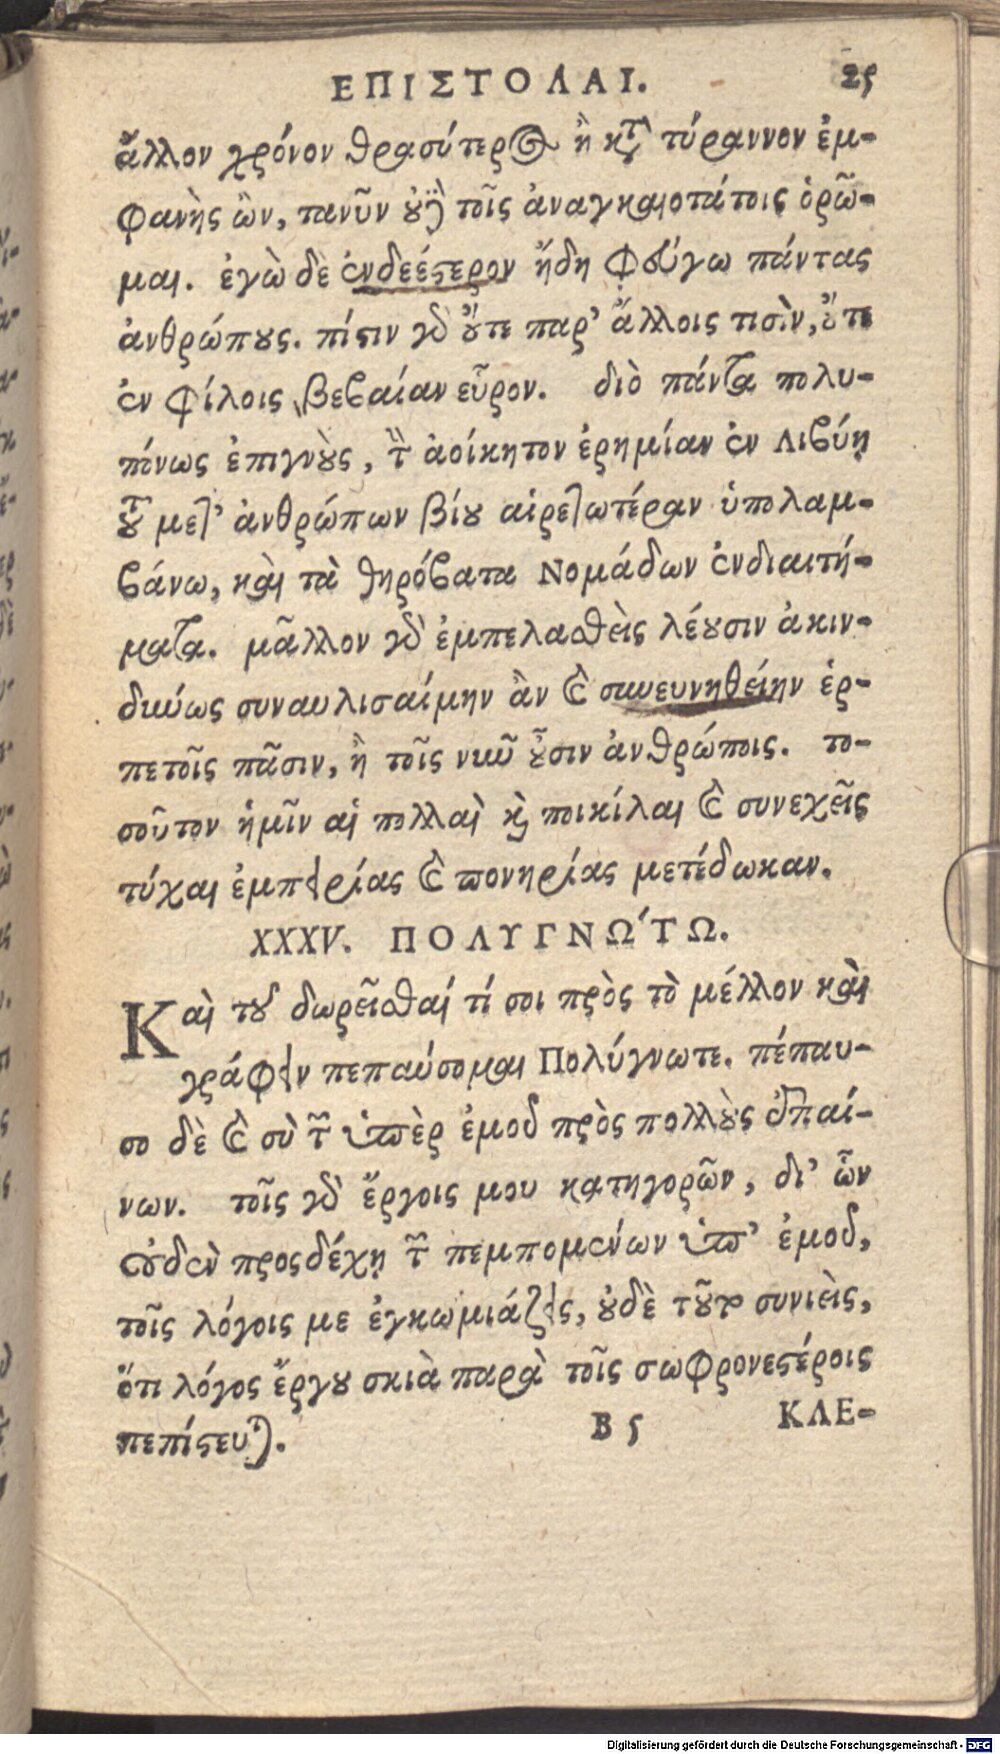 ΕΠΙΣΤΟΛΑΙ. 25
ἄλλον χρόνον θρασύτερος ἢ κατὰ τύραννον ἐμ-
φανὴς ὢν, τανῦν οὐδὲ τοῖς ἀναγκαιοτάτοις ὁρῶ-
μαι. ἐγὼ δὲ ἐνδεέςερον ἤδη φεύγω πάντας
ἀνθρώπους. πίςιν γὰρ οὔτε παρ’ ἄλλοις τισὶν, οὔτε
ἐν φίλοις βεβαίαν εὗρον. διὸ πάντα πολυ-
πόνως ἐπιγνοὺς, τὴν ἀοίκητον ἐρημίαν ἐν Λιβύῃ
τοῦ μετ’ ἀνθρώπων βίου αἱρετωτέραν ὑπολαμ-
βάνω, καὶ τὰ θηρόβατα Νομάδων ἐνδιαιτή-
ματα. μᾶλλον γὰρ ἐμπελασθεὶς λέουσιν ἀκιν-
δύνως συναυλισαίμην ἂν καὶ συνευνηθείην ἑρ-
πετοῖς πᾶσιν, ἢ τοῖς νῦν οὖσιν ἀνθρώποις. το-
σοῦτον ἡμῖν αἱ πολλαὶ καὶ ποικίλαι καὶ συνεχεῖς
τύχαι ἐμπειρίας καὶ πονηρίας μετέδωκαν.
XXXV. ΠΟΛΥΓΝΩΤΩ.
Καὶ τοῦ δωρεῖσθαί τί σοι πρὸς τὸ μέλλον καὶ
γράφειν πεπαύσομαι Πολύγνωτε. πέπαυ-
σο δὲ καὶ σὺ τῶν ὑπὲρ ἐμοῦ πρὸς πολλοὺς ἐπαί-
νων. τοῖς γὰρ ἔργοις μου κατηγορῶν, δι’ ὧν
οὐδὲν προσδέχῃ τῶν πεμπομένων ὑπ’ ἐμοῦ,
τοῖς λόγοις με ἐγκωμιάζεις, οὐδὲ τοῦτο συνιεὶς,
ὅτι λόγος ἔργου σκιὰ παρὰ τοῖς σωφρονεςέροις
πεπίςευται.
B 5 ΚΛΕ-
Digitalisierung gefördert durch die Deutsche Forschungsgemeinschaft - DFG